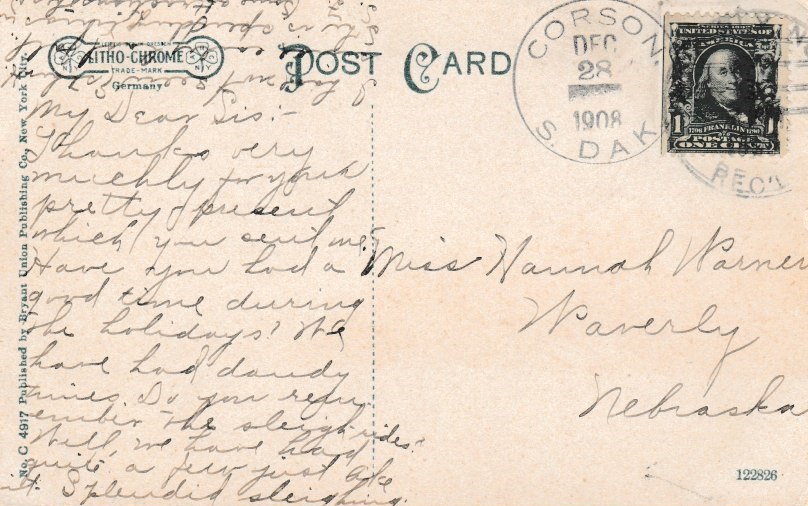 LITHO-CHROME
TRADE-MARK
Germany
POST CARD
CORSON.
DEC
28
1908
S. DAK
REC'D
UNITED STATES OF
AMERICA
1790 FRANKLIN 1790
POSTAGE
1 ONE CENT 1
My Dear Sis:-
Thanks very
muchly for your
pretty present
which you sent me.
Have you had a
good time during
the holidays? We
have had dandy
times. Do you rem-
ember the sleigh rides?
Well, we have had
quite a few just like
it. Splendid sleighing.
Miss Hannah Warner
Waverly
Nebraska
No. C 4917 Published by Bryant Union Publishing Co., New York City.
122826